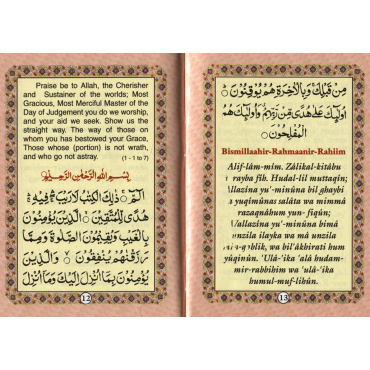 Praise be to Allah, the Cherisher
and Sustainer of the worlds; Most
Gracious, Most Merciful Master of the
Day of Judgement you do we worship,
and your aid we seek. Show us the
straight way. The way of those on
whom you has bestowed your Grace,
Those whose (portion) is not wrath,
and who go not astray.
(1 - 1 to 7)
بِسْمِ اللهِ الرَّحْمٰنِ الرَّحِيْمِ
الٓمّٓ ۚ ذٰلِكَ الْكِتٰبُ لَارَيْبَ ۛ فِيْهِ ۛ
هُدًى لِّلْمُتَّقِيْنَ ۙ الَّذِيْنَ يُؤْمِنُوْنَ
بِالْغَيْبِ وَيُقِيْمُوْنَ الصَّلٰوةَ وَمِمَّا
رَزَقْنٰهُمْ يُنْفِقُوْنَ ۙ وَالَّذِيْنَ
يُؤْمِنُوْنَ بِمَآ اُنْزِلَ اِلَيْكَ وَمَآ اُنْزِلَ
12
مِنْ قَبْلِكَ وَبِالْاٰخِرَةِ هُمْ يُوْقِنُوْنَ ؕ
اُولٰٓئِكَ عَلٰى هُدًى مِّنْ رَّبِّهِمْ وَاُولٰٓئِكَ هُمُ
الْمُفْلِحُوْنَ
Bismillaahir-Rahmaanir-Rahiim
Alif-lâm-mîm. Zâlikal-kitâbu
rayba fîh. Hudal-lil muttaqîn;
\llazîna yu'-minûna bil ghaybi
yuqîmûnas salâta wa mimmâ
razaqnâhum yun-fiqûn;
\/allazîna yu'-minûna bimâ
nzila ilayka wa mâ unzila
qblik, wa bil'âkhirati hum
yûqinûn. 'Ulâ-'ika 'alâ hudam-
mir-rabbihim wa 'ulâ-'ika
humul-muf-lihûn.
13